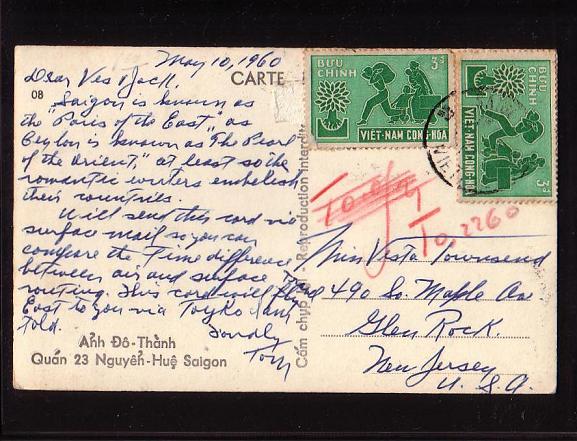 May 10, 1960
CARTE
Dear Ves & Jack,
08
Saigon is known as
the "Paris of the East," as
Ceylon is known as "The Pearl
of the Orient," at least so the
romantic writers embelish
their countries.
Will send this card via
surface mail so you can
compare the time difference
between air and surface
routing. This card will
East to you via Toyko I am
told.
Fondly
Tom
Ảnh Đô-Thành
Quán 23 Nguyễn-Huệ Saigon
Cấm chụp lại - Reproduction interdite
BƯU CHÍNH
3đ
VIỆT-NAM CỘNG-HÒA
BƯU CHÍNH
3đ
VIỆT-NAM CỘNG-HÒA
VIET
T 0,2260
Miss Vesta Townsend
490 So. Maple Ave
Glen Rock.
New Jersey
U. S. A.